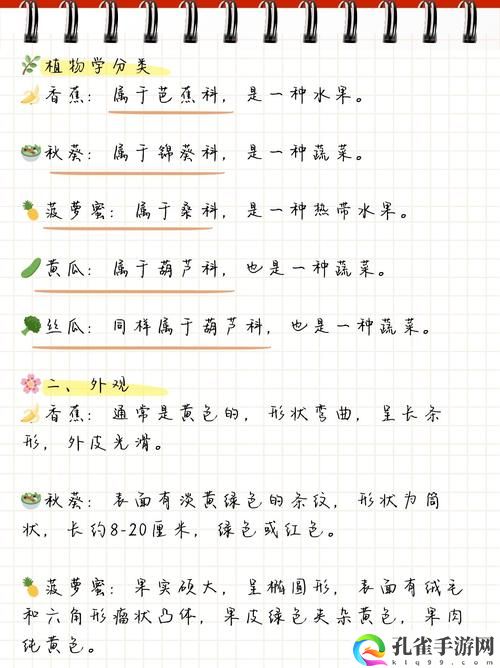 植物学分类
香蕉：属于芭蕉科，是一种水果。
秋葵：属于锦葵科，是一种蔬菜。
菠萝蜜：属于桑科，是一种热带水果。
黄瓜：属于葫芦科，也是一种蔬菜。
丝瓜：同样属于葫芦科，也是一种蔬菜。
二、外观
香蕉：通常是黄色的，形状弯曲，呈长条
形，外皮光滑。
秋葵：表面有淡黄绿色的条纹，形状为筒
状，长约8-20厘米，绿色或红色。
菠萝蜜：果实硕大，呈椭圆形，表面有绒毛
和六角形瘤状凸体，果皮绿色夹杂黄色，果肉
纯黄色。
孔雀手游网
klq99.com